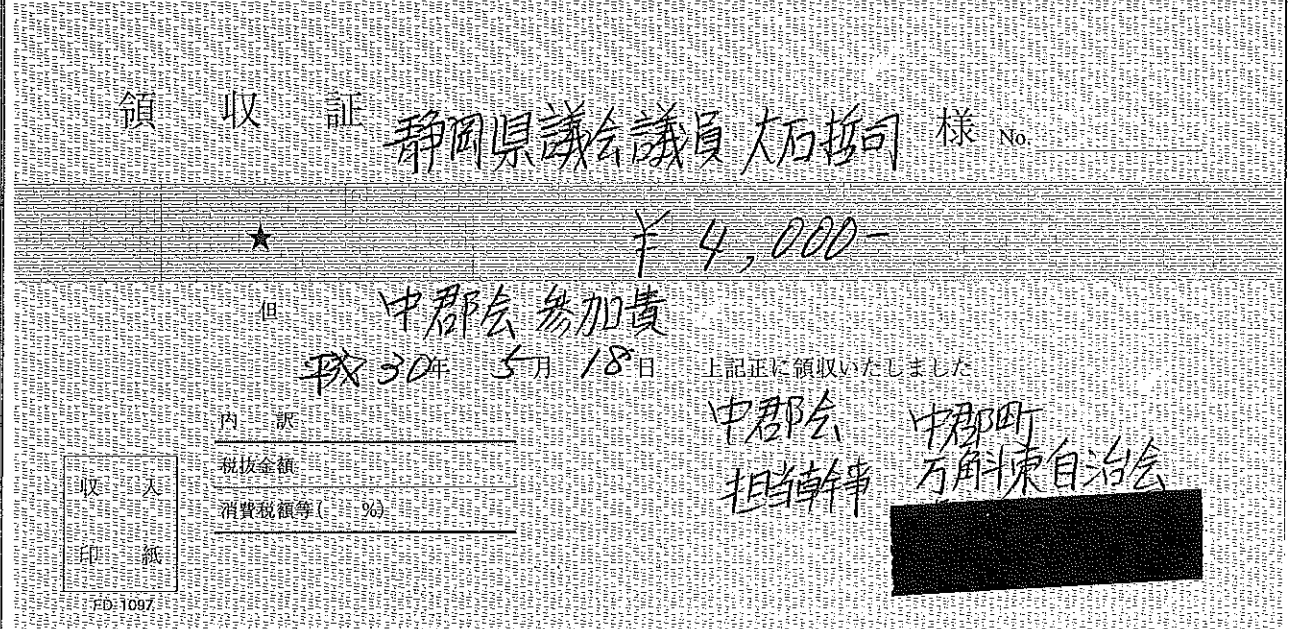 領収証 静岡県議会議員 大石哲司 様 No.
★ ¥4,000-
但 中郡会 参加費
平成30年 5月 18日 上記正に領収いたしました
内訳
税抜金額
消費税額等( %)
収入
印紙
FD 1097
中郡会 中郡町
担当幹事 万斛東自治会